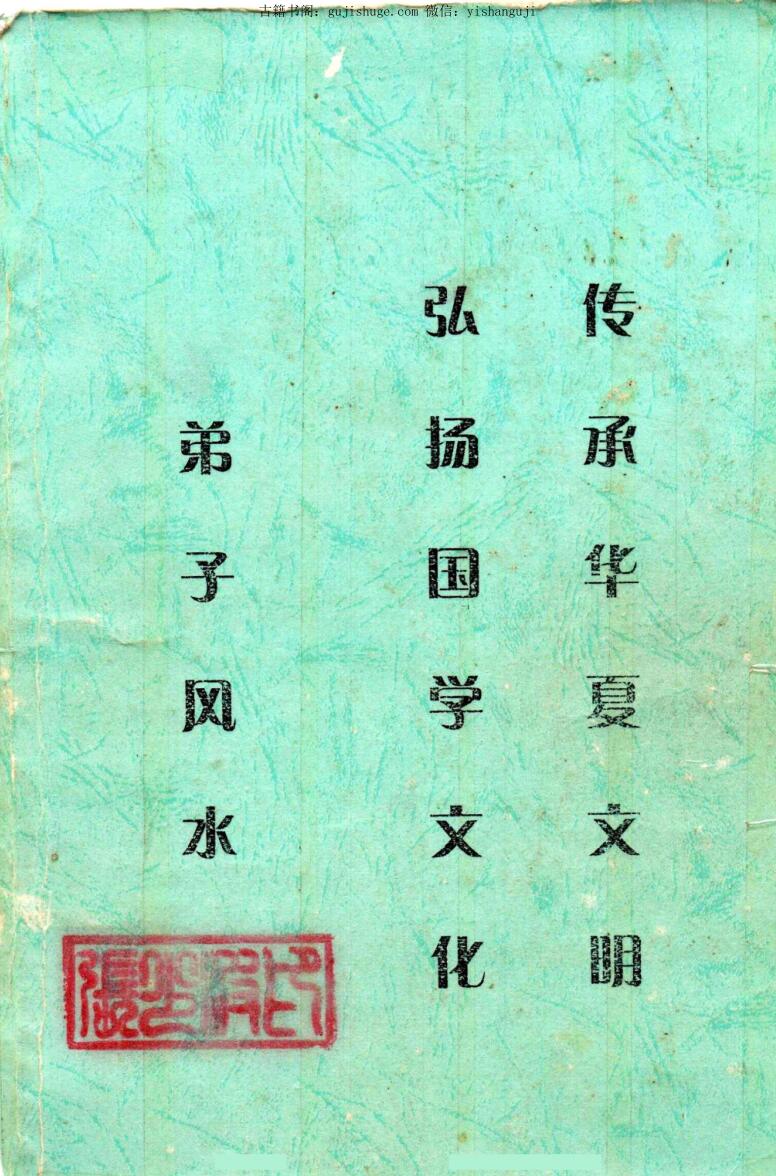 古籍书阁：gujishuge.com 微信：yishanguji
传承华夏文明
弘扬国学文化
弟子风水